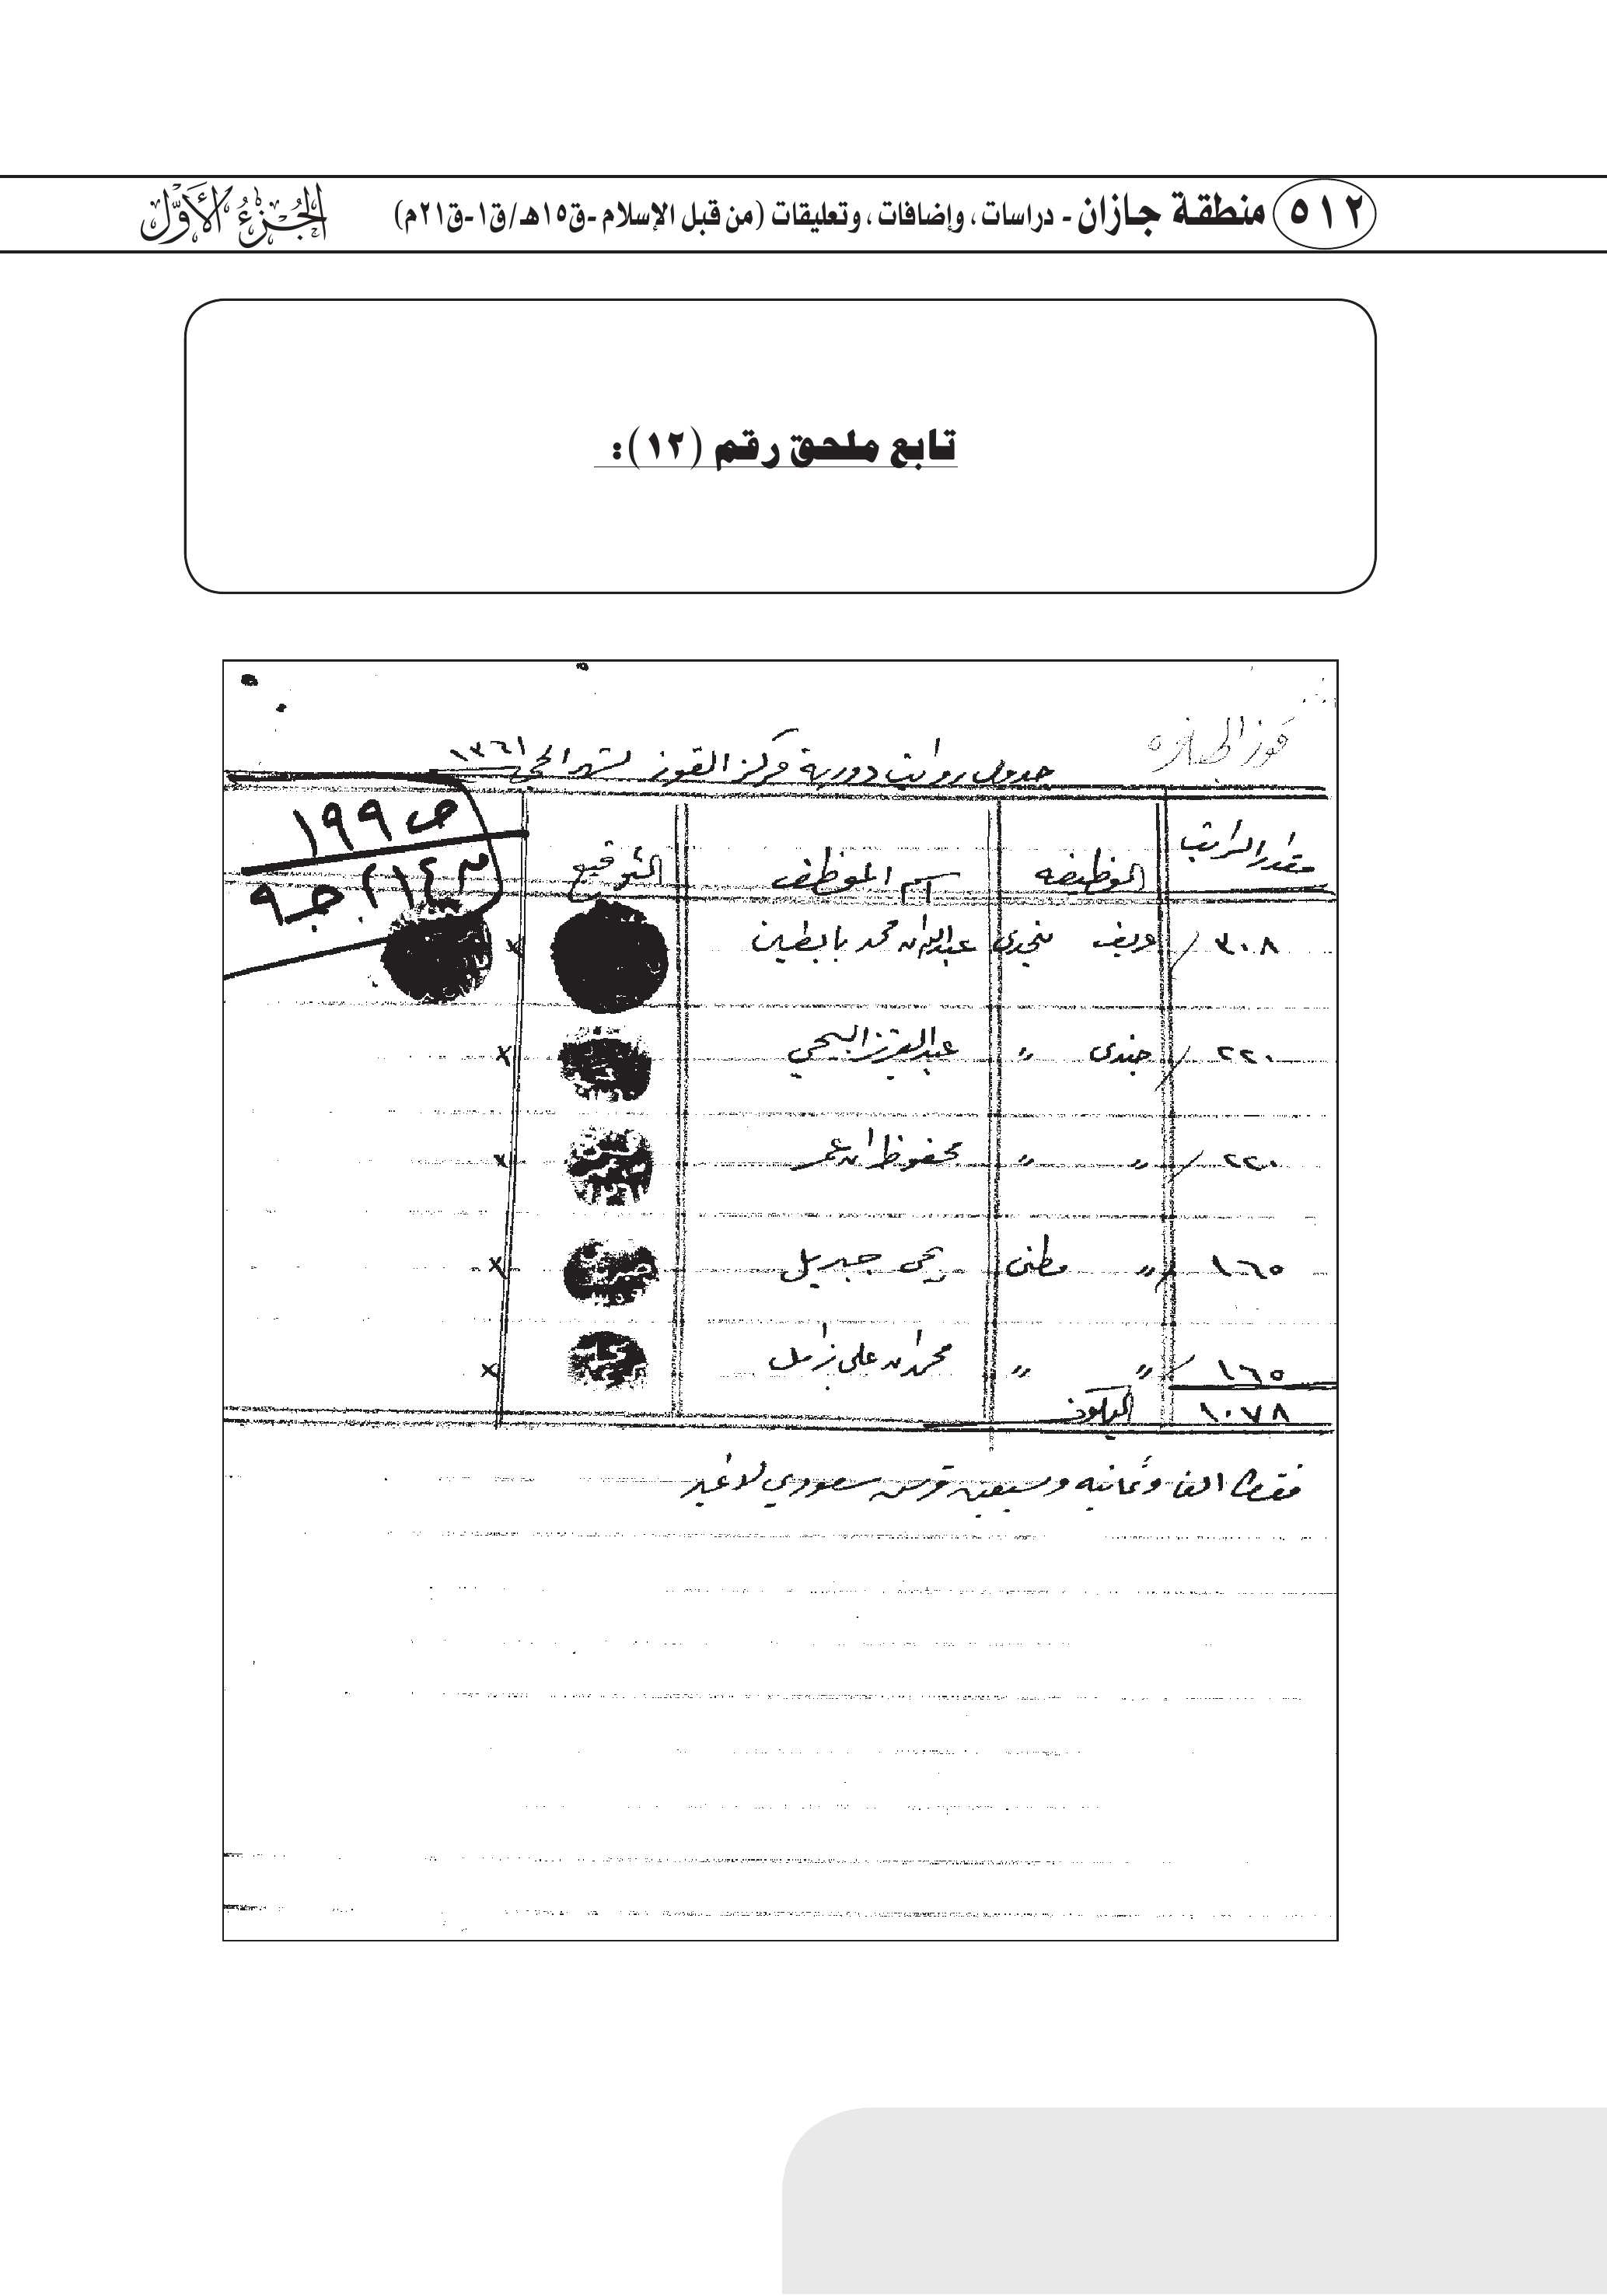 ٥١٢ منطقة جازان - دراسات، وإضافات، وتعليقات (من قبل الإسلام -ق١٥هـ/ق١-ق٢١م) الجزء الأول
تابع ملحق رقم (١٢):
جدول رواتب دورية مركز القوز لشهر الحجه ١٣٦١
ص ١٩٩
م ٢١٤ جـ ٩
مقدار الراتب الوظيفه اسم الموظف التوقيع
٣٠٨ / عريف نجدي عبدالله محمد بابطين x
٢٢٠ / جندي " عبدالعزيز x
٢٢٠ / " " محفوظ ابن عمر x
١٦٥ / " وطني يحي جبريل x
١٦٥ / " " محمد ابن علي زامل x
١٠٧٨ اليكون
فقط الف وثمانيه وسبعين قرش سعودي لا غير